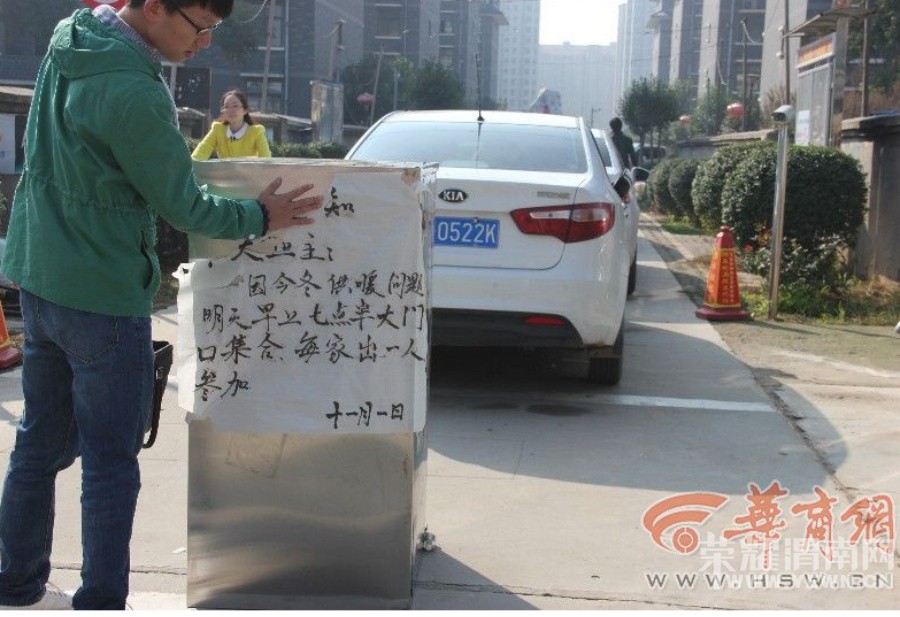 知
大业主:
因今冬供暖问题
明天早上七点半大门
口集合.每家出一人
参加
十一月一日
KIA
0522K
華商網
荣耀渭南网
WWW.HSW.CN